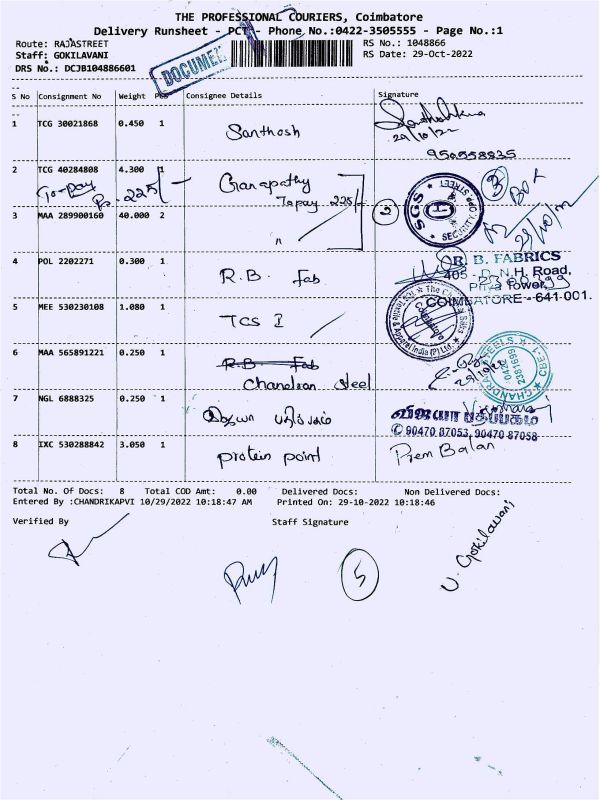 THE PROFESSIONAL COURIERS, Coimbatore
Delivery Runsheet - PCT - Phone No.:0422-3505555 - Page No.:1
Route: RAJASTREET
RS No.: 1048866
Staff: GOKILAVANI
RS Date: 29-Oct-2022
DRS No.: DCJB104886601
DOCUMEN
S No Consignment No Weight Pcs Consignee Details Signature
1 TCG 30021868 0.450 1 Santhosh
29/10/22
2 TCG 40284808 4.300 1 Ganapathy
To-pay Rs. 225/- Topay 225/-
SGS
SECURITY
STREET
3 BOX
29/10/22
3 MAA 289900160 40.000 2 "
2
4 POL 2202271 0.300 1 R.B. Fab
R. B. FABRICS
405 - D, N.H. Road,
Priya Tower,
COIMBATORE - 641 001.
5 MEE 530230108 1.080 1 TCS I
Textile & Apparel India (P) Ltd.
6 MAA 565891221 0.250 1 R.B Fab
Chandran Steel
29/10/22
CHANDRAN STEELS
0422
2381699
CBE-1
7 NGL 6888325 0.250 1 விஜயா பதிப்பகம்
விஜயா பதிப்பகம்
90470 87053, 90470 87058
8 IXC 530288842 3.050 1 protein point
Prem Balan
Total No. Of Docs: 8 Total COD Amt: 0.00 Delivered Docs: Non Delivered Docs:
Entered By :CHANDRIKAPVI 10/29/2022 10:18:47 AM Printed On: 29-10-2022 10:18:46
Verified By Staff Signature
5
U. Gokilavani